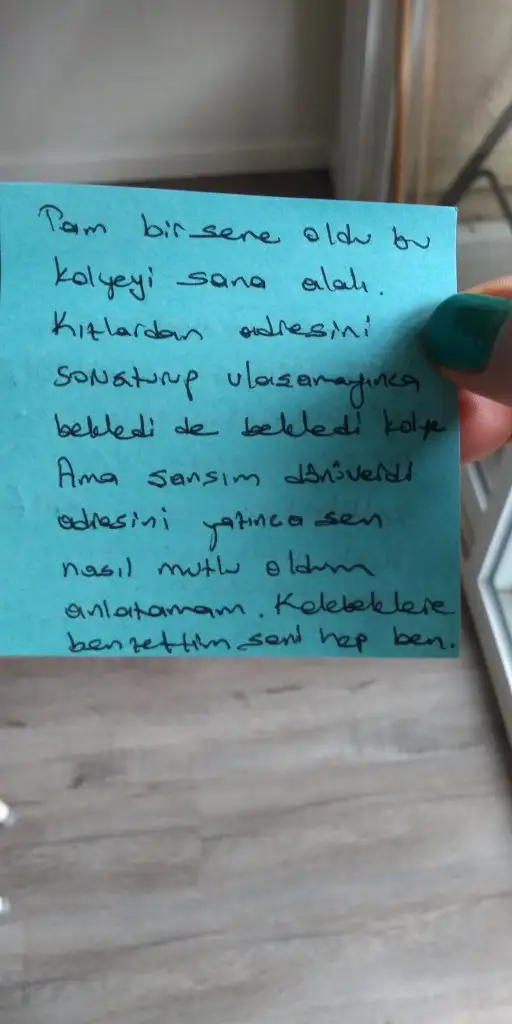 Tam bir sene oldu bu
kolyeyi sana alalı.
Kızlardan adresini
soraturup ulaşamayınca
bekledi de bekledi kolye
Ama şansım dönüverdi
adresini yazınca sen
nasıl mutlu oldum
anlatamam. Kelebeklere
benzettim seni hep ben.